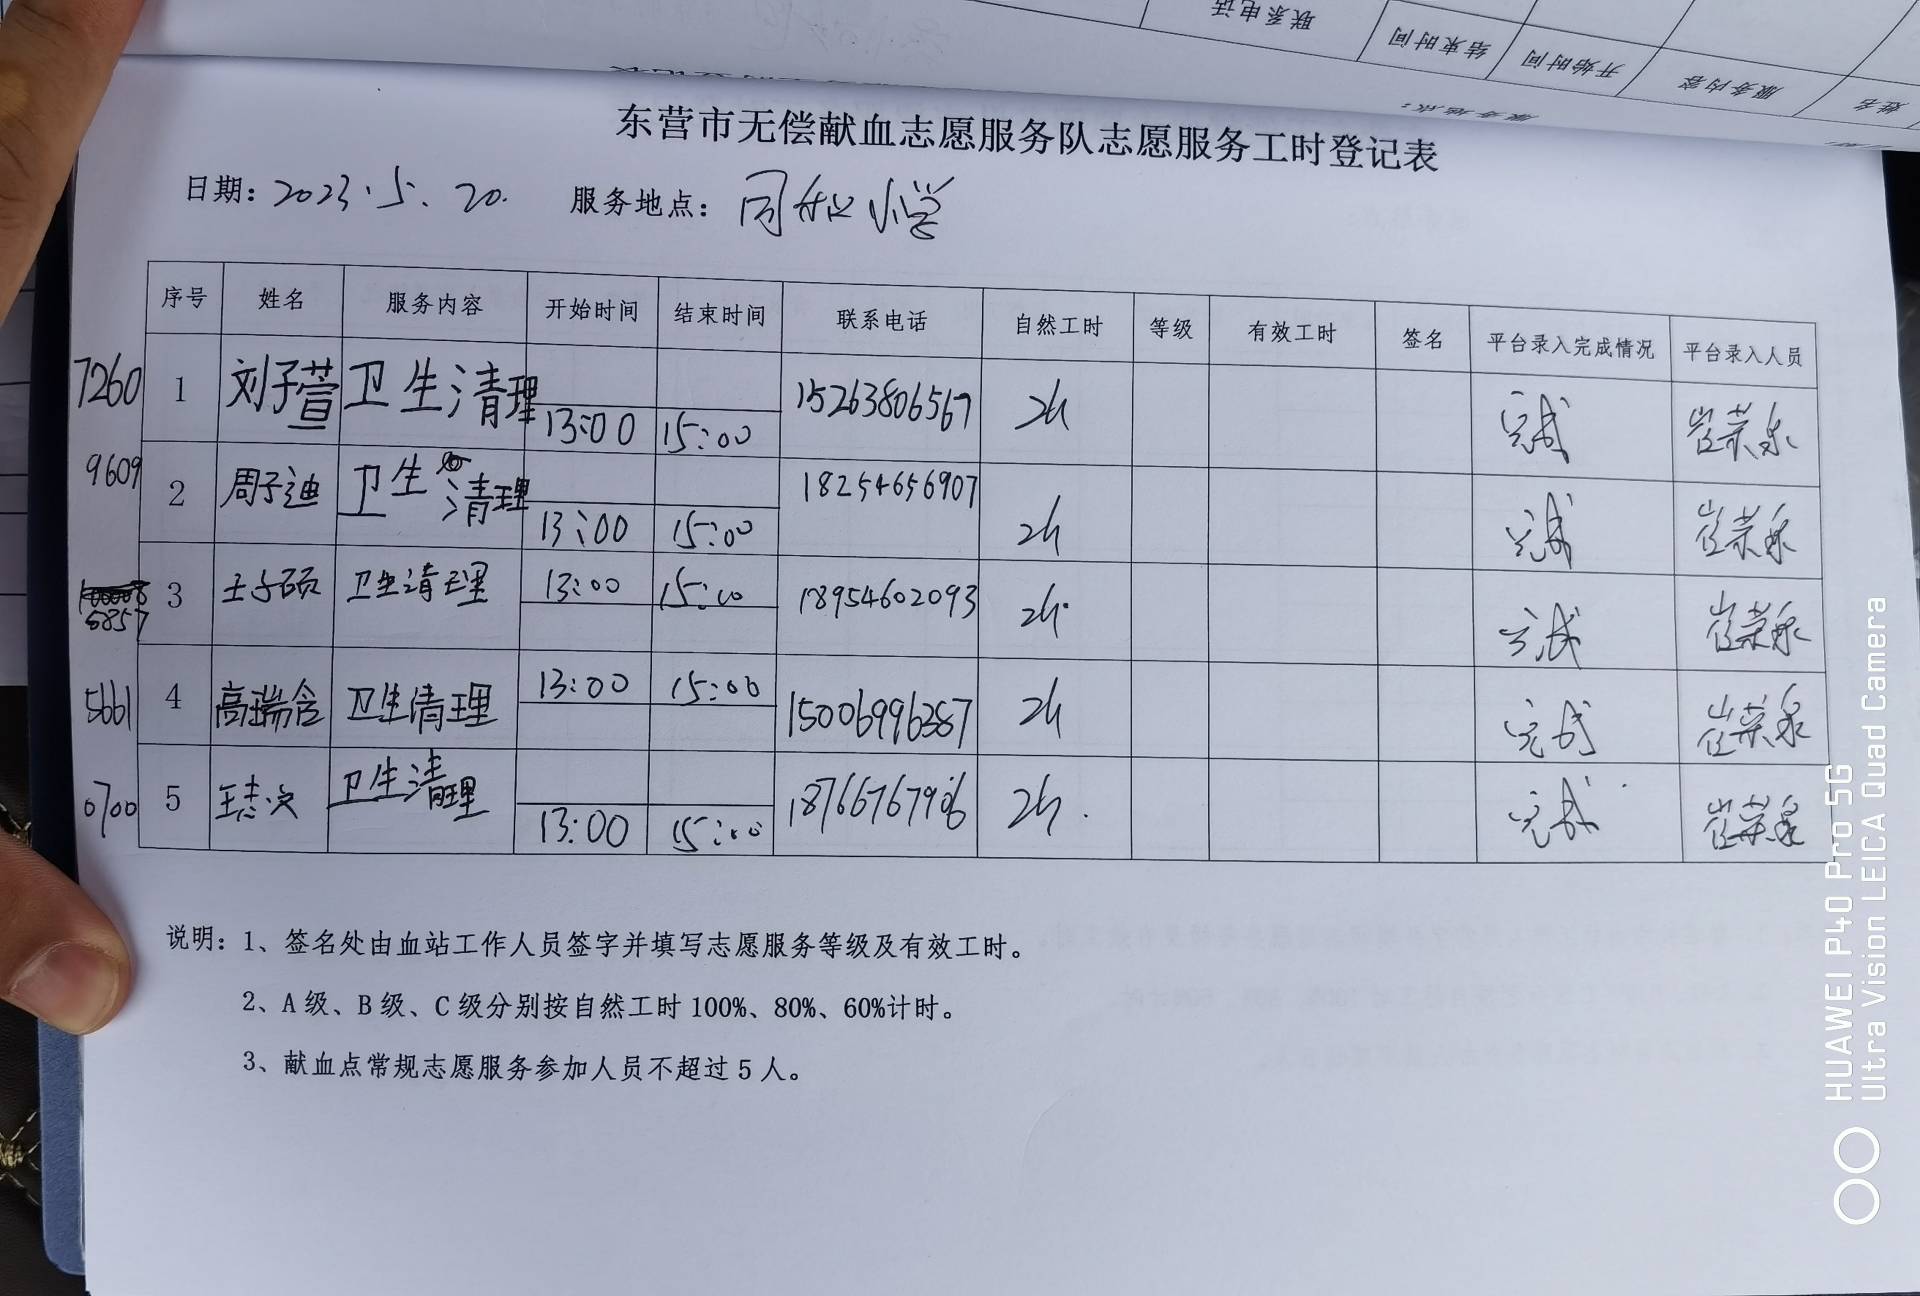 联系电话
结束时间
开始时间
服务内容
姓名
服务地点：
东营市无偿献血志愿服务队志愿服务工时登记表
日期：2023.5.20. 服务地点：同和小学
序号 姓名 服务内容 开始时间 结束时间 联系电话 自然工时 等级 有效工时 签名 平台录入完成情况 平台录入人员
7260 1 刘子萱 卫生清理 13:00 15:00 15263806567 2h 完成 崔荣泉
9609 2 周子迪 卫生清理 13:00 15:00 18254656907 2h 完成 崔荣泉
6857 3 卫生清理 13:00 15:00 18954602093 2h. 完成 崔荣泉
5661 4 高瑞含 卫生清理 13:00 15:00 15006996387 2h 完成 崔荣泉
0700 5 卫生清理 13:00 15:00 2h. 完成 崔荣泉
说明：1、签名处由血站工作人员签字并填写志愿服务等级及有效工时。
2、A级、B级、C级分别按自然工时100%、80%、60%计时。
3、献血点常规志愿服务参加人员不超过5人。
HUAWEI P40 Pro 5G
Ultra Vision LEICA Quad Camera